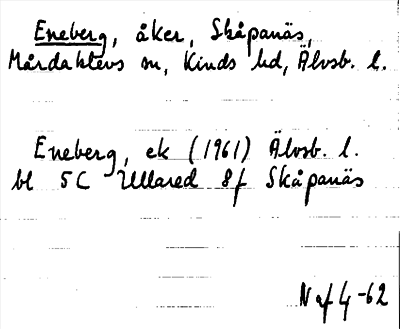 Eneberg, åker, Skåpanäs,
Mårdaklevs sn, Kinds hd, Älvsb. l.
Eneberg, ek (1961) Älvsb. l.
bl 5C Ullared 8f Skåpanäs
N af 4-62